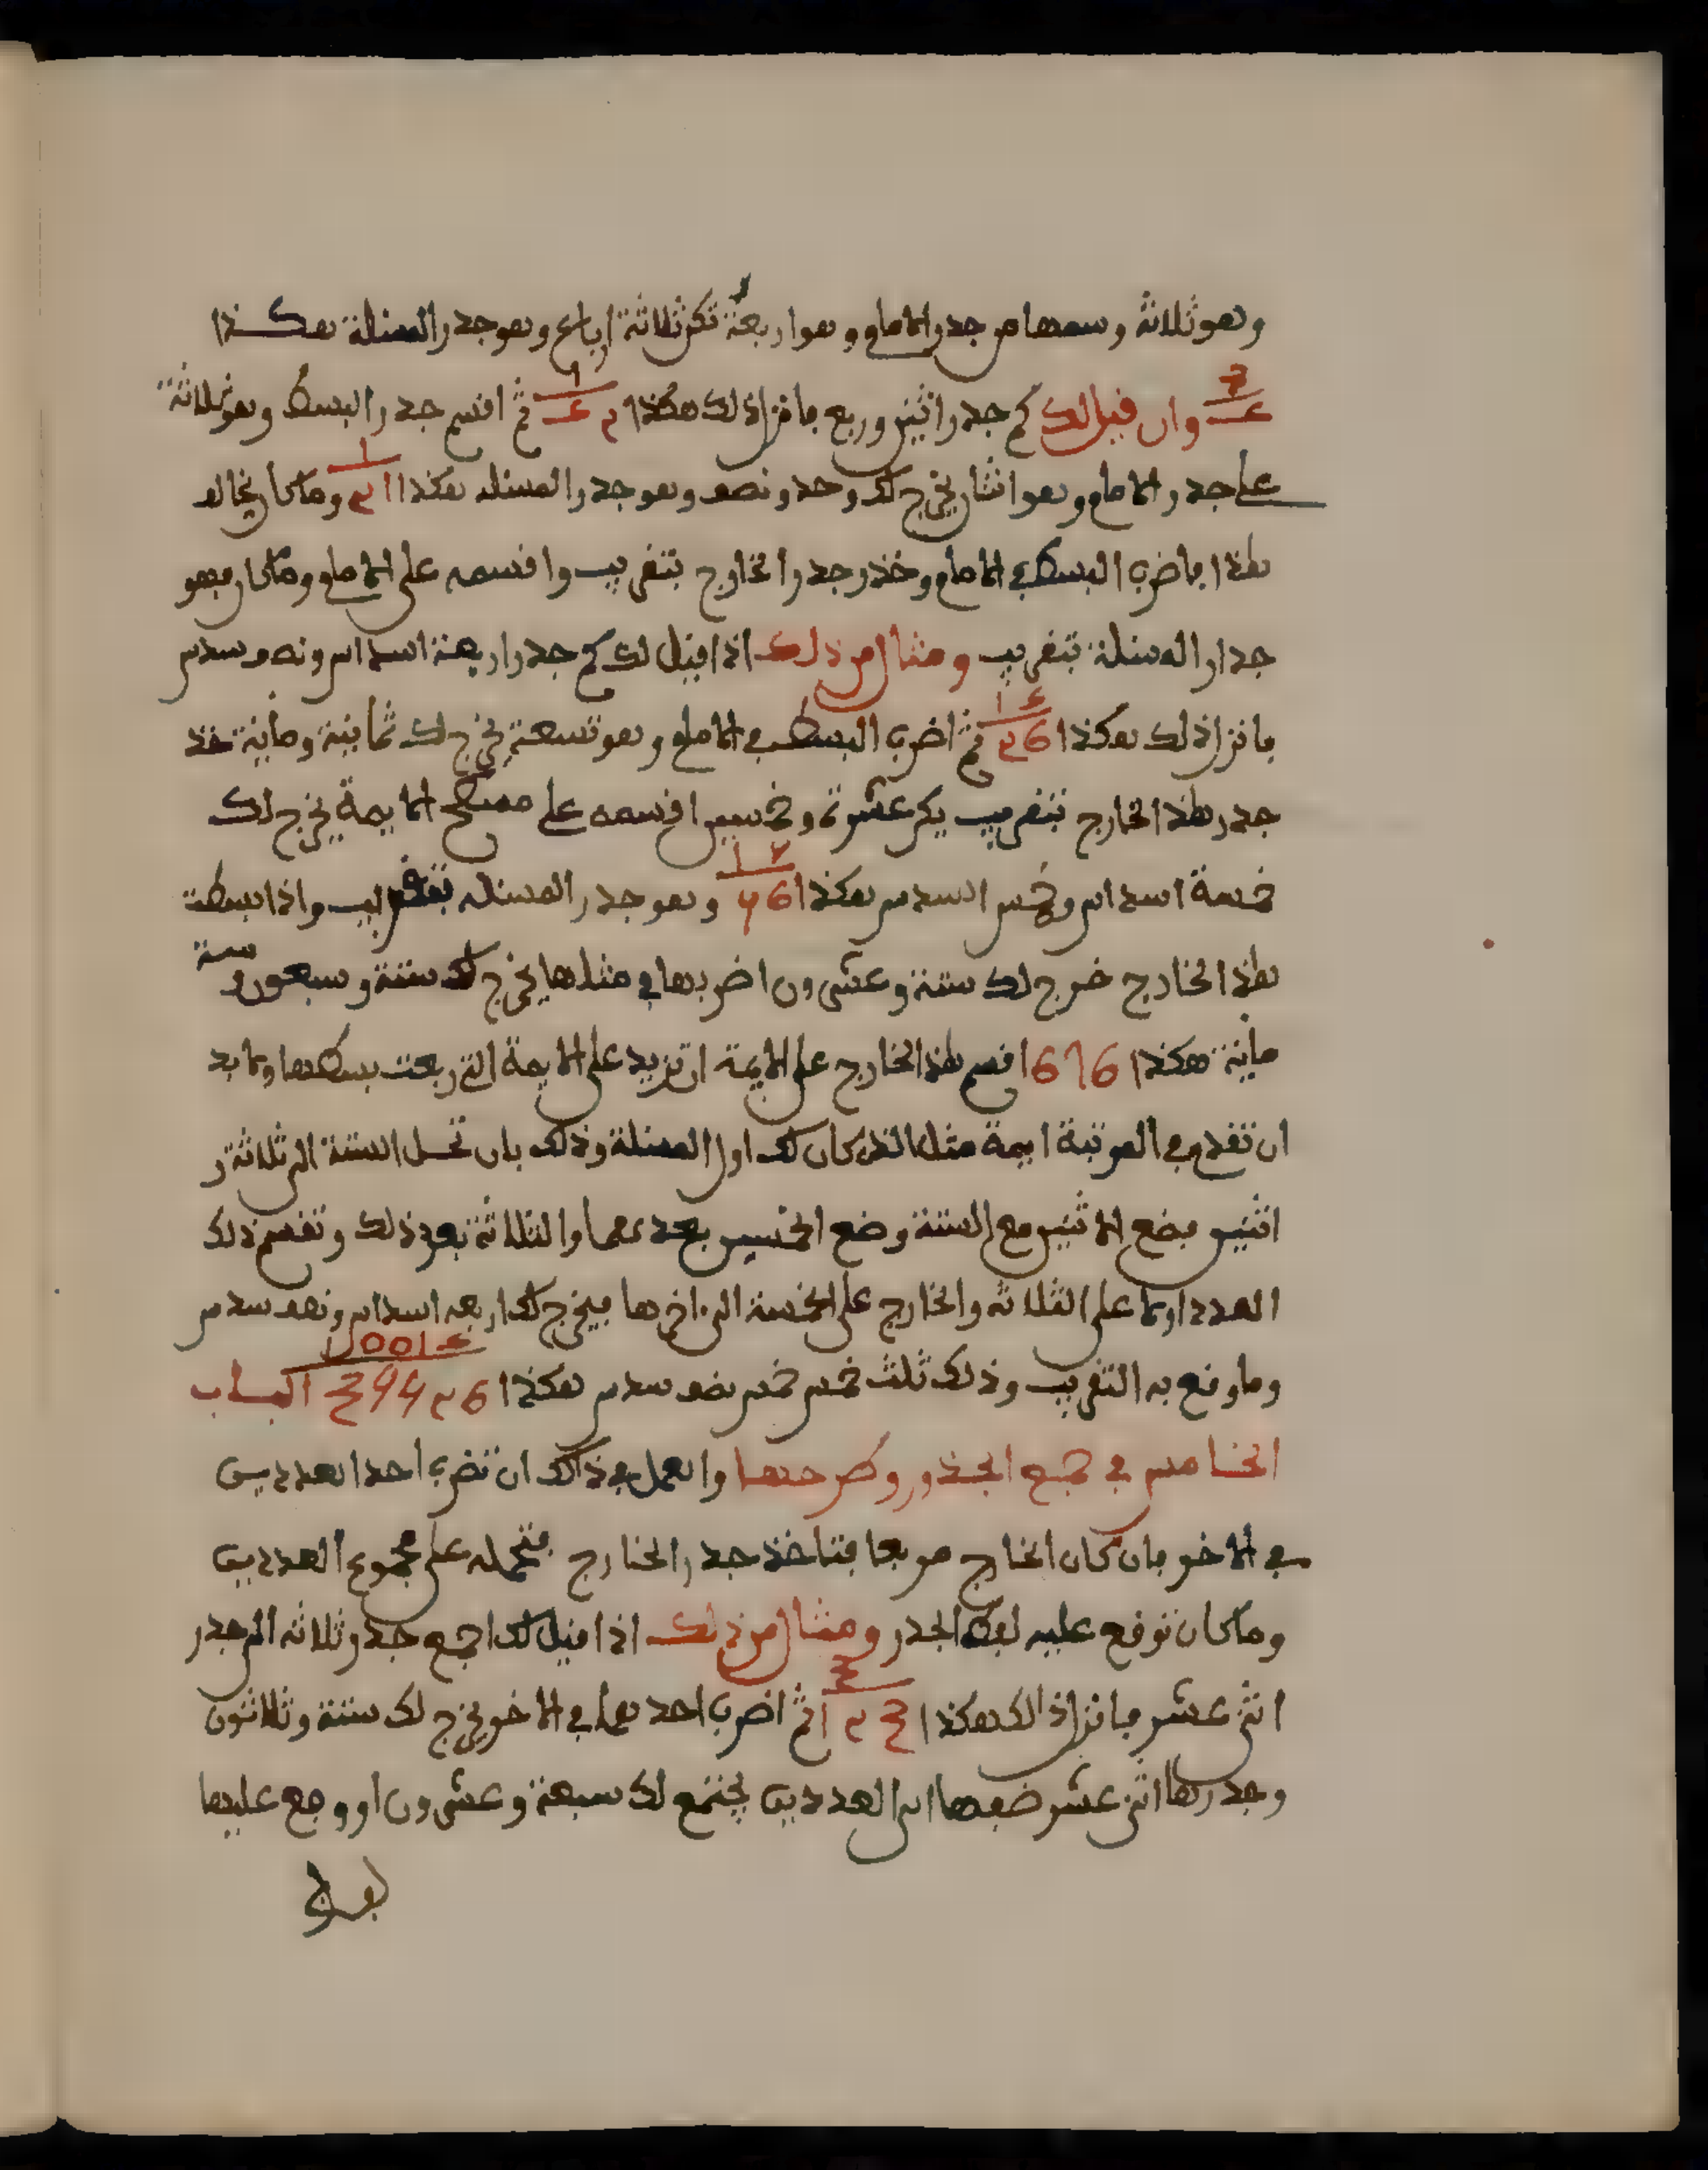 وهو ثلاثة وسمها من جدر الامام وهو اربعة تكن ثلاثة ارباع وهو جدر المسئلة هكذا
3/4 وان فيل لك كم جدر اثنين وربع فانزل ذلك هكذا 1/4 2 ثم افسم جدر البسط وهو ثلاثة
على جدر الامام وهو اثنان يخرج لك وحد ونصف وهو جدر المسئلة هكذا 1/2 1 وما كان يخالف
هذا فاضرب البسط في الامام وخذ جدر الخارج بتفريب وافسمه على الامام وما كان فهو
جدر المسئلة بتفريب ومثال من ذلك اذا فيل لك كم جدر اربعة اسداس ونصف سدس
فانزل ذلك هكذا 1 4/2 6 ثم اضرب البسط في الامام وهو تسعة يخرج لك ثمانية ومائة خذ
جدر هذا الخارج بتفريب يكن عشرة وخمسين افسمه على مسطح الايمة يخرج لك
خمسة اسداس وخمس السدس هكذا وهو جدر المسئلة بتفريب واذا بسطت
هذا الخارج خرج لك ستة وعشرون اضربها في مثلها يخرج لك ستة وسبعون وستة
مائة هكذا 676 افسم هذا الخارج على الايمة ان تزيد على الايمة التي ربعت بسطها ولابد
ان تفدم في المرتبة ايمة مثل الذي كان لك اول المسئلة وذلك بان تحل الستة الى ثلاثة و
اثنين فضع الاثنين مع الستة وضع الخمسين بعدهما والثلاثة بعد ذلك وتفسم ذلك
العدد اولا على الثلاثة والخارج على الخمسة الى اخرها فيخرج لك اربعة اسداس ونصف سدس
وما وفع به التفريب وذلك ثلث خمس خمس نصف سدس هكذا الباب
الخامس في جمع الجذور وطرحها والعمل في ذلك ان تضرب احد العددين
في الاخر فان كان الخارج مربعا فتاخذ جدر الخارج فتحمله على مجموع العددين
وما كان توفع عليه لفظ الجدر ومثال من ذلك اذا فيل لك اجمع جدر ثلاثة الى جدر
اثنى عشر فانزل ذالك هكذا 3 12 ثم اضرب احدهما في الاخر يخرج لك ستة وثلاثون
وجدرها اثنى عشر ضعفها الى العددين يجتمع لك سبعة وعشرون اوفع عليها
لفظ